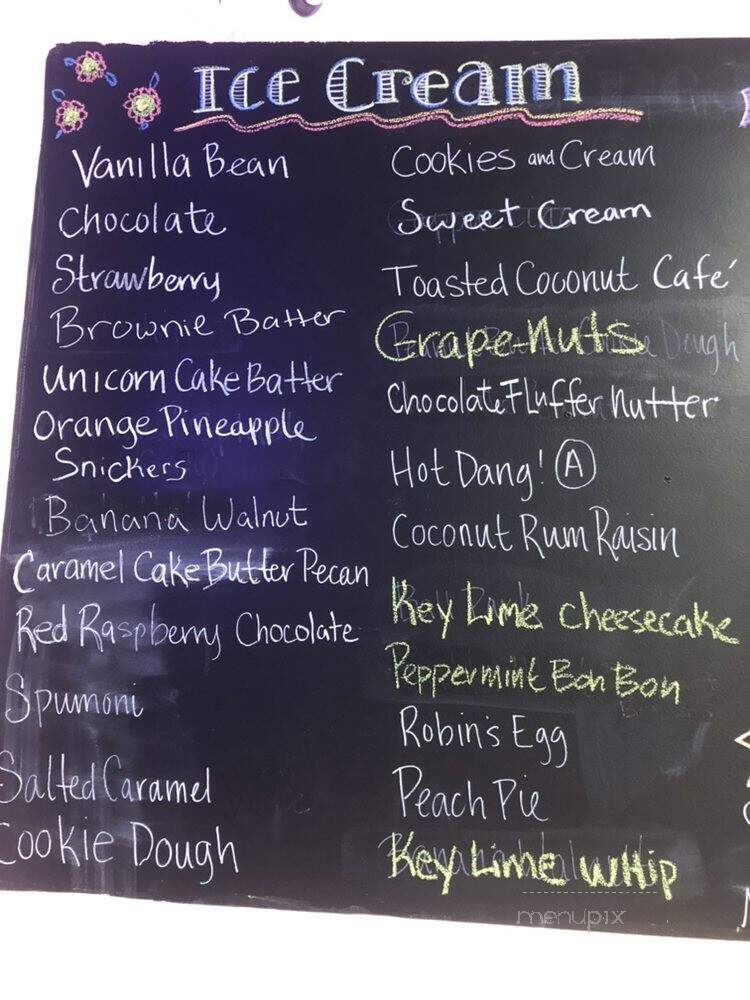 Ice Cream
Vanilla Bean
Chocolate
Strawberry
Brownie Batter
Unicorn Cake Batter
Orange Pineapple
Snickers
Banana Walnut
Caramel Cake Butter Pecan
Red Raspberry Chocolate
Spumoni
Salted Caramel
Cookie Dough
Cookies and Cream
Sweet Cream
Toasted Coconut Cafe´
Grape-Nuts
Chocolate Fluffer Nutter
Hot Dang! A
Coconut Rum Raisin
Key Lime cheesecake
Peppermint Bon Bon
Robin's Egg
Peach Pie
Key Lime Whip
menupix